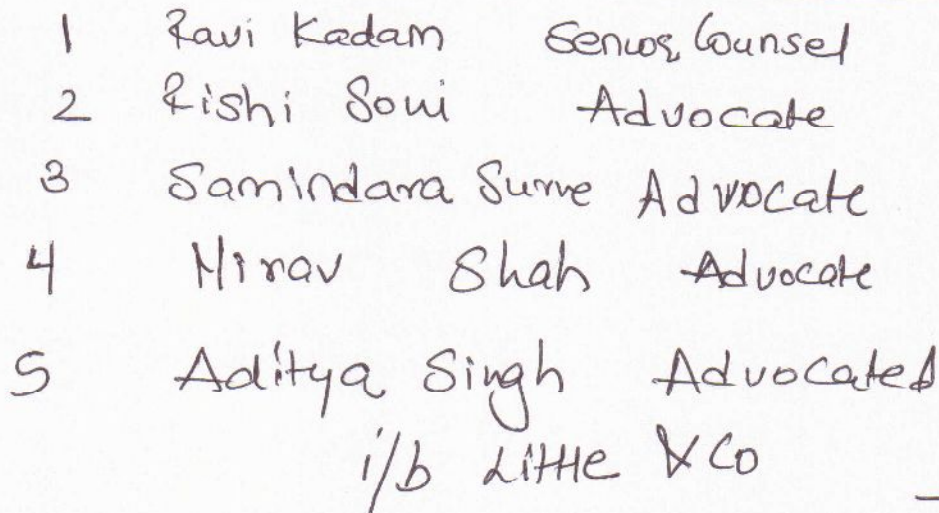 1 Ravi Kadam Senior Counsel
2 Rishi Soni Advocate
3 Samindara Surve Advocate
4 Nirav Shah Advocate
5 Aditya Singh Advocated
i/b Little & Co